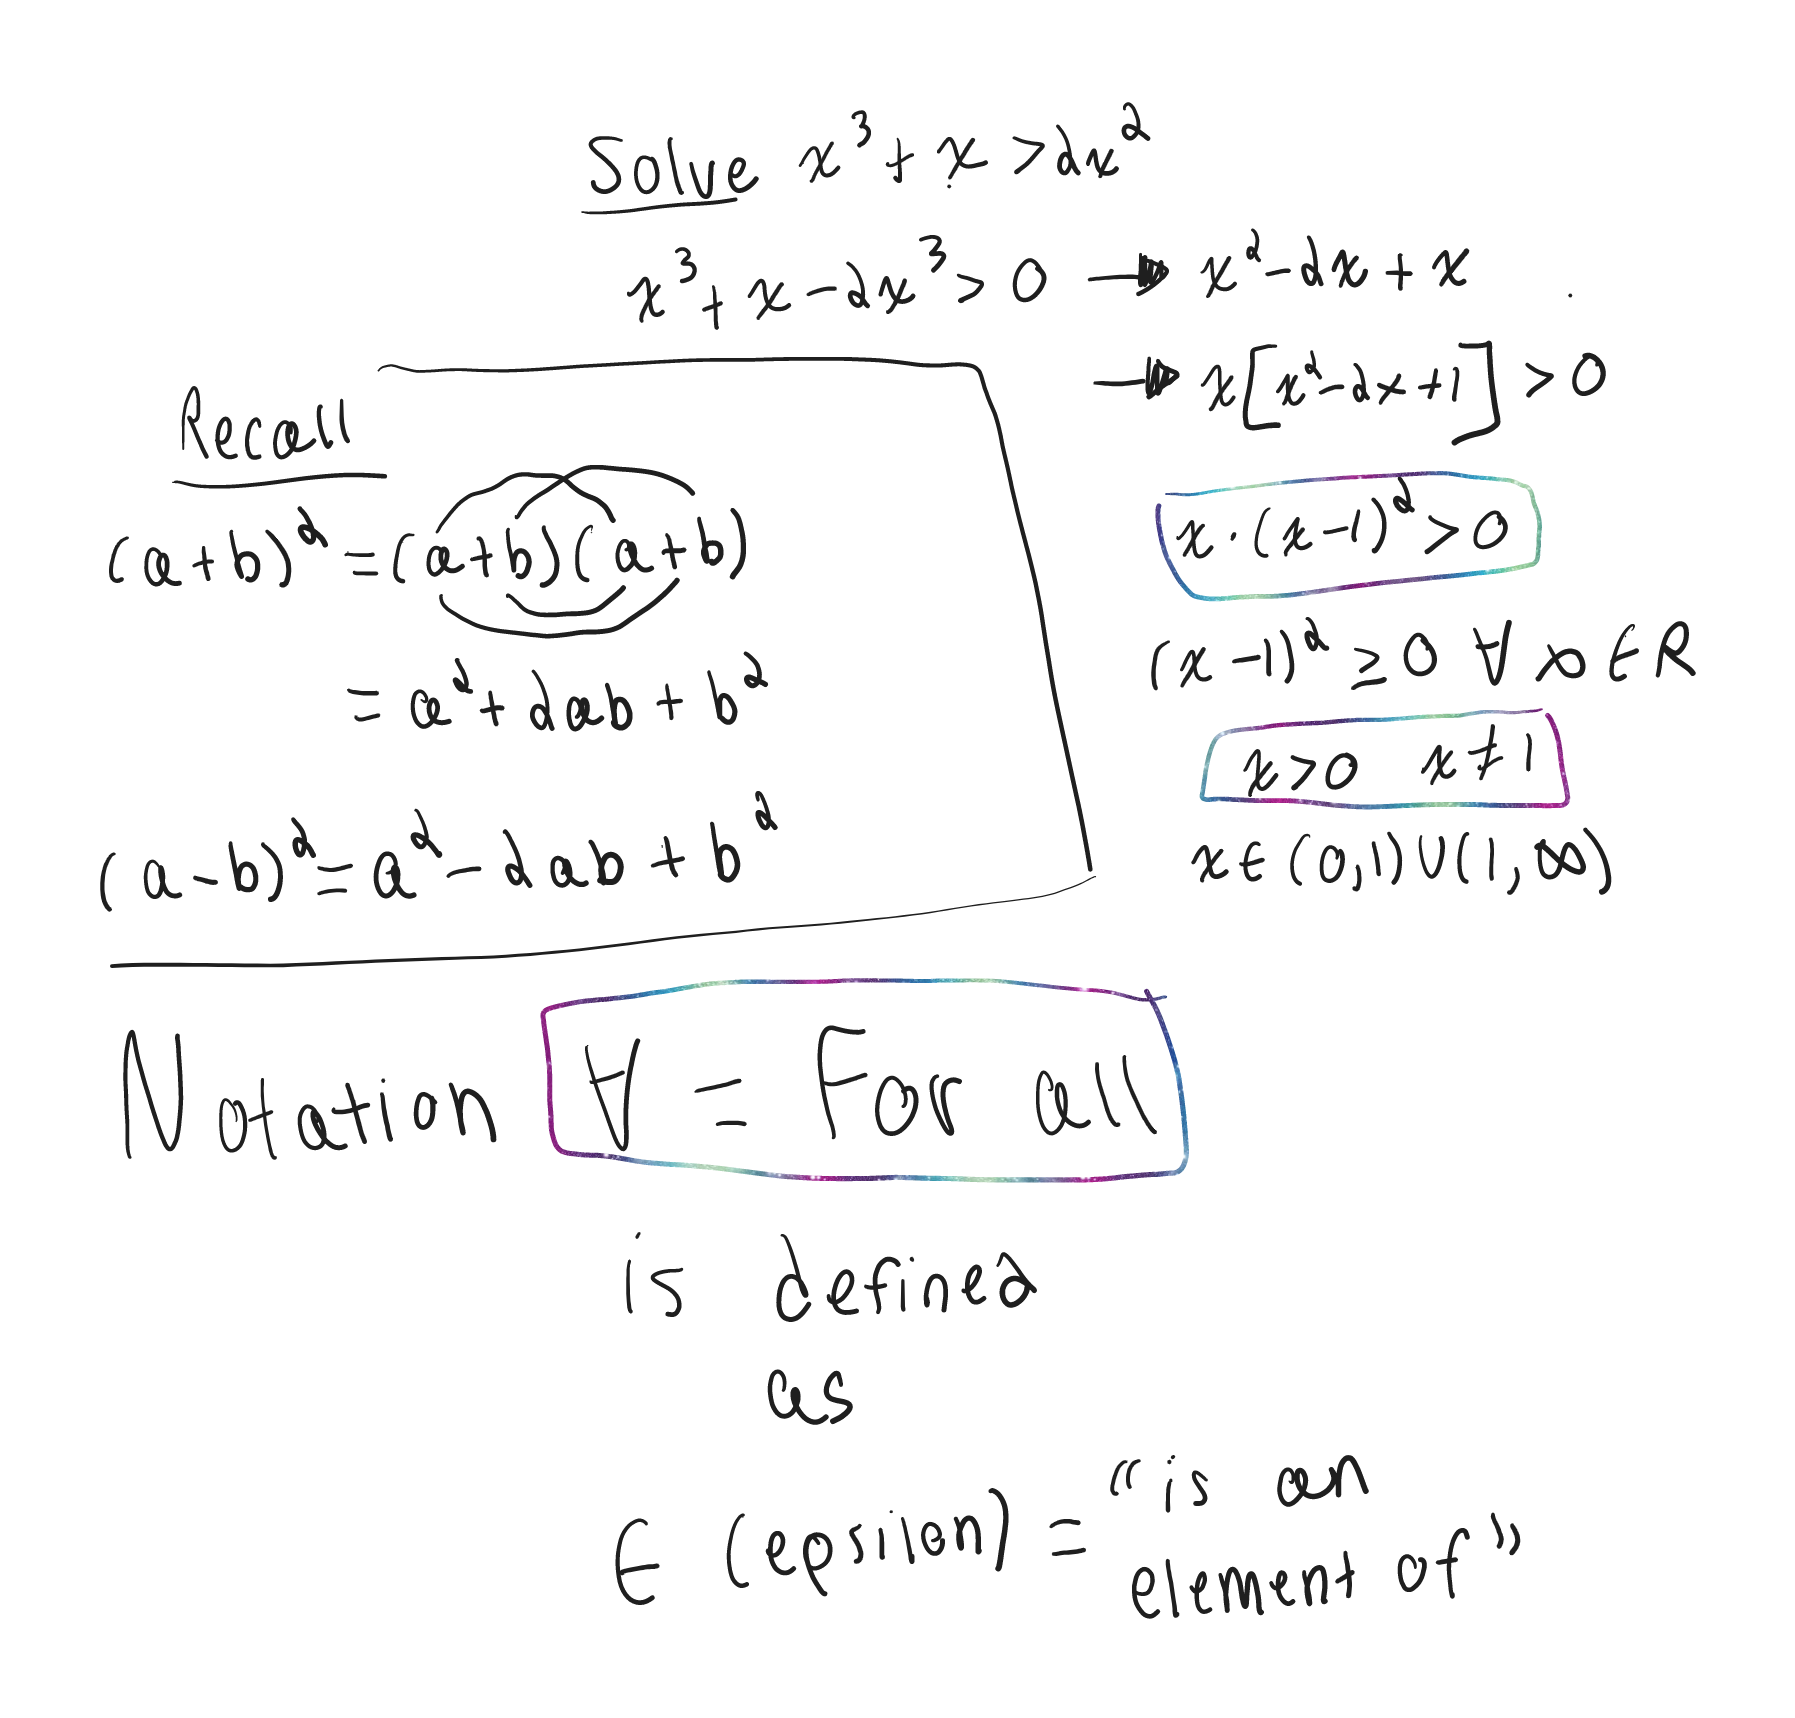 Solve x³ + x > 2x²
x³ + x - 2x³ > 0 → x² - 2x + x
→ x[x² - 2x + 1] > 0
x · (x - 1)² > 0
(x - 1)² ≥ 0 ∀ x ∈ R
x > 0 x ≠ 1
x ∈ (0, 1) ∪ (1, ∞)
Recall
(a + b)² = (a + b)(a + b)
= a² + 2ab + b²
(a - b)² = a² - 2ab + b²
Notation ∀ = For all
is defined
as
∈ (epsilon) = “is an
element of”